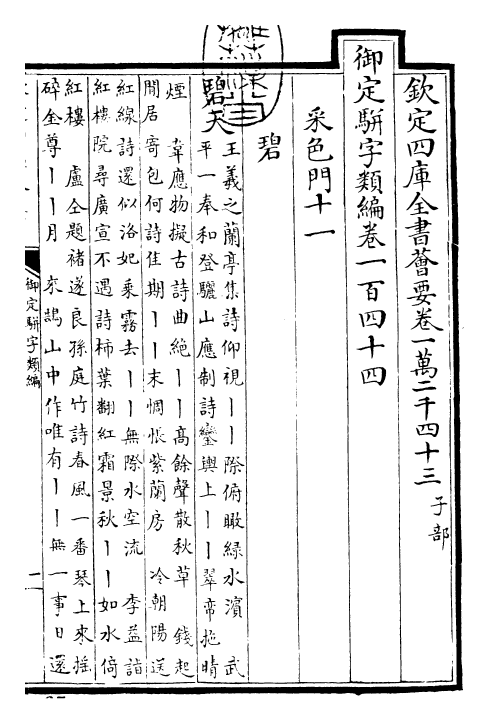 欽定四庫全書薈要卷一萬二千四十三 子部
御定駢字類編卷一百四十四
采色門十一
碧
碧天 王羲之蘭亭集詩仰視丨丨際俯瞰綠水濱 武
平一奉和登驪山應制詩鑾輿上丨丨翠帟拖晴
煙 韋應物擬古詩曲絶丨丨高餘聲散秋草 錢起
閒居寄包何詩佳期丨丨末惆悵紫蘭房 冷朝陽送
紅線詩還似洛妃乘霧去丨丨無際水空流 李益詣
紅樓院尋廣宣不遇詩柿葉翻紅霜景秋丨丨如水倚
紅樓 盧仝題褚遂良孫庭竹詩春風一番琴上來搖
碎金尊丨丨月 來鵠山中作唯有丨丨無一事日還
御定駢字類編
一